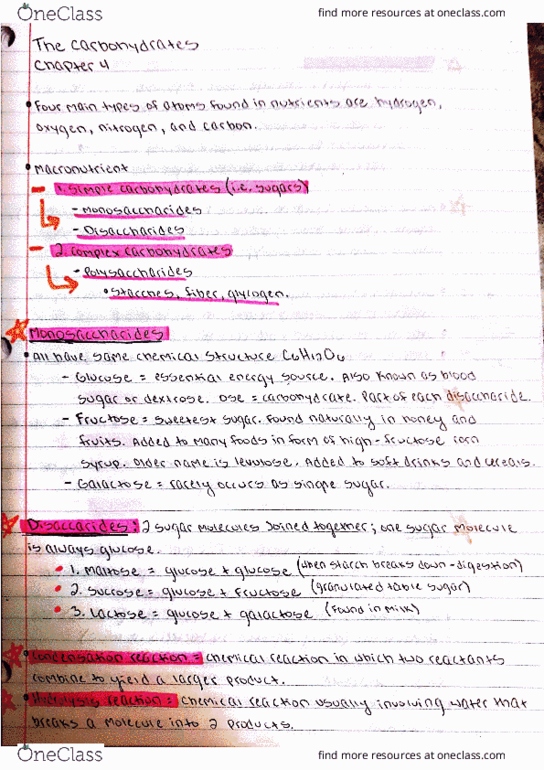 OneClass
find more resources at oneclass.com
The Carbohydrates
Chapter 4
• Four main types of atoms found in nutrients are hydrogen,
oxygen, nitrogen, and carbon.
• Macronutrient
– 1. Simple carbohydrates (i.e. sugars)
- Monosaccharides
- Disaccharides
– 2. Complex carbohydrates
- Polysaccharides
• Starches, fiber, glycogen.
Monosaccharides
• All have same chemical structure C6H12O6
- Glucose = essential energy source. Also known as blood
sugar or dextrose. Ose = carbohydrate. Part of each disaccharide.
- Fructose = sweetest sugar. Found naturally in honey and
fruits. Added to many foods in form of high-fructose corn
syrup. Older name is levulose. Added to soft drinks and cereals.
- Galactose = rarely occurs as single sugar.
Disaccarides: 2 sugar molecules joined together; one sugar molecule
is always glucose.
• 1. Maltose = glucose + glucose (when starch breaks down - digestion)
• 2. Sucrose = glucose + fructose (granulated table sugar)
• 3. Lactose = glucose + galactose (found in milk)
Condensation reaction = chemical reaction in which two reactants
combine to yield a larger product.
Hydrolysis reaction = chemical reaction usually involving water that
breaks a molecule into 2 products.
OneClass
find more resources at oneclass.com